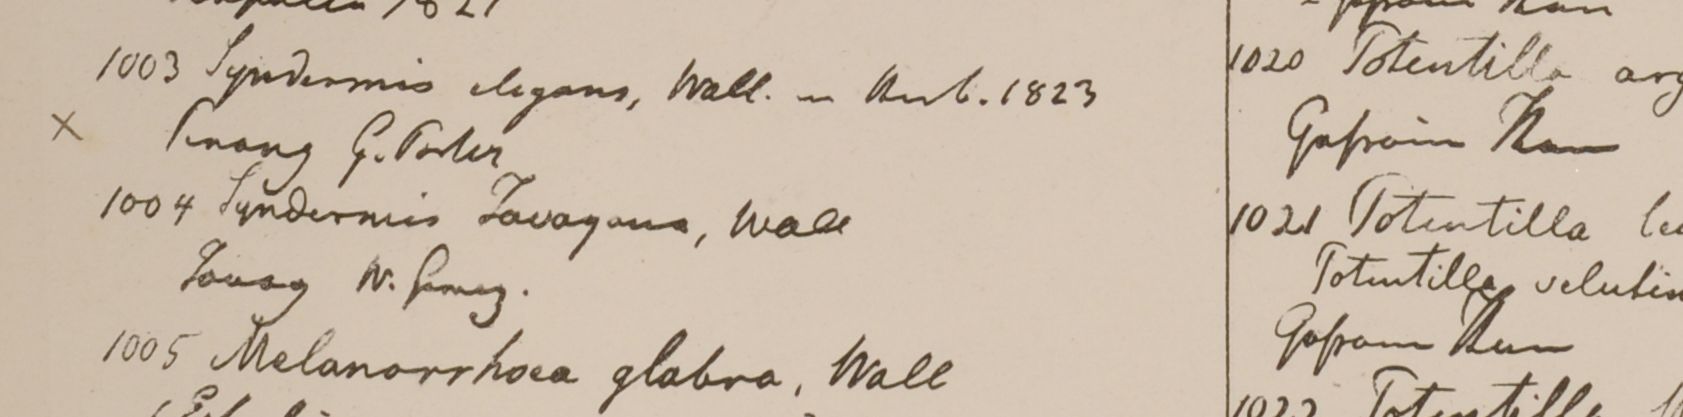 1821
1003 Syndesmis elegans, Wall. in Herb. 1823
× Pinang G. Porter
1004 Syndesmis Tavoyana, Wall
Tavoy W. Gomez.
1005 Melanorrhoea glabra, Wall
1020 Potentilla arg
Gosain Than
1021 Potentilla leu
Potentilla velutin
Gosain Than
1022 Potentilla